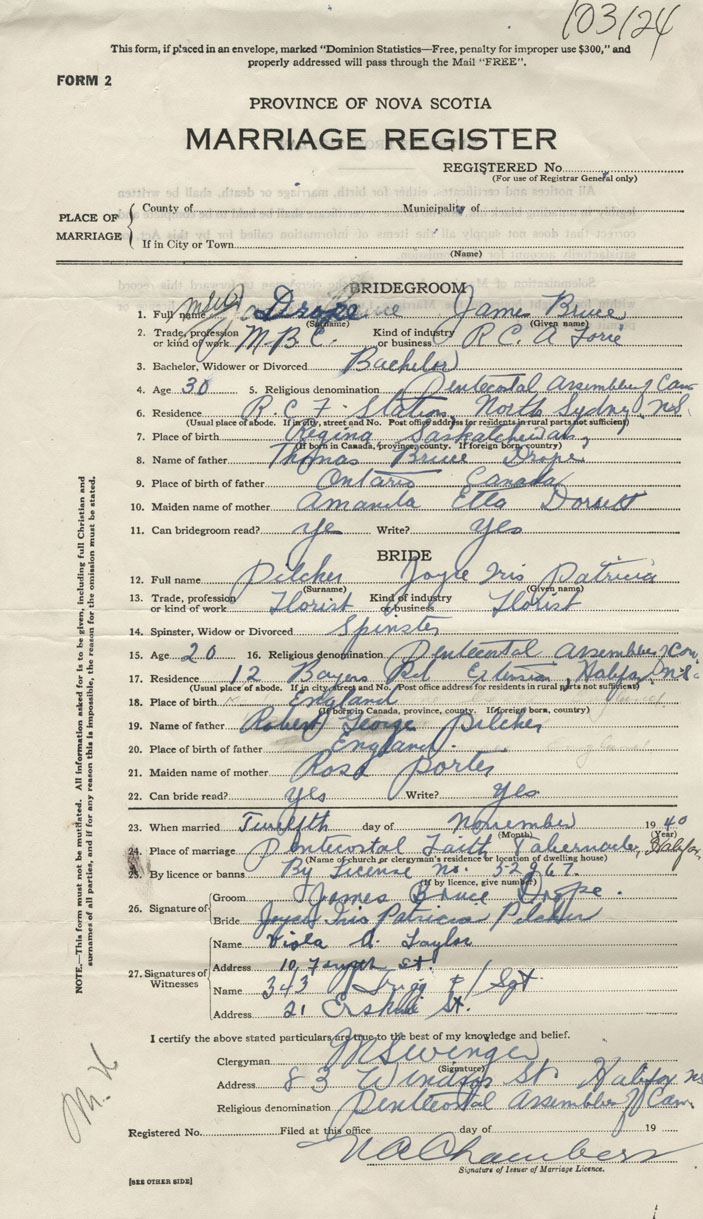 103/24
This form, if placed in an envelope, marked "Dominion Statistics—Free, penalty for improper use $300," and
properly addressed will pass through the Mail "FREE".
FORM 2
PROVINCE OF NOVA SCOTIA
MARRIAGE REGISTER
REGISTERED No.
(For use of Registrar General only)
PLACE OF MARRIAGE
County of Municipality of
If in City or Town
(Name)
BRIDEGROOM
1. Full name Drope James Bruce
(Surname) (Given name)
2. Trade, profession or kind of work M.B.C. Kind of industry or business R.C.A.
3. Bachelor, Widower or Divorced Bachelor
4. Age 30 5. Religious denomination Pentecostal Assemblies of Can
6. Residence R.C.F. Station, North Sydney, N.S.
(Usual place of abode. If in city, street and No. Post office address for residents in rural parts not sufficient)
7. Place of birth Regina Saskatchewan,
(If born in Canada, province, county. If foreign born, country)
8. Name of father Thomas Bruce Drope
9. Place of birth of father Ontario Canada
10. Maiden name of mother Amanda Etta
11. Can bridegroom read? ye Write? yes
BRIDE
12. Full name Pilcher Joyce Iris Patricia
(Surname) (Given name)
13. Trade, profession or kind of work Florist Kind of industry or business Florist
14. Spinster, Widow or Divorced Spinster
15. Age 20 16. Religious denomination Pentecostal Assemblies of Can,
17. Residence 12 Bayers Rd Extension, Halifax, N.S.
(Usual place of abode. If in city, street and No. Post office address for residents in rural parts not sufficient)
18. Place of birth England
(If born in Canada, province, county. If foreign born, country)
19. Name of father Robert George Pilcher
20. Place of birth of father England.
21. Maiden name of mother Rosa Porter
22. Can bride read? yes Write? yes
23. When married Twelfth day of November 1940
(Month) (Year)
24. Place of marriage Pentecostal Faith Tabernacle, Halifax,
(Name of church or clergyman's residence or location of dwelling house)
25. By licence or banns By License no. 52967.
(If by licence, give number)
26. Signature of
Groom James Bruce Drope.
Bride Joyce Iris Patricia Pilcher
27. Signatures of Witnesses
Name Viola A. Taylor
Address 10 St.
Name 343 Trigg P/Sgt
Address 21 Erskine St.
I certify the above stated particulars are true to the best of my knowledge and belief.
Clergyman Swinger
(Signature)
Address 83 Windsor St Halifax NS
Religious denomination Pentecostal Assemblies of Can,
Registered No. Filed at this office day of 19
Chambers
Signature of Issuer of Marriage Licence.
[SEE OTHER SIDE]
NOTE.—This form must not be mutilated. All information asked for is to be given, including full Christian and
surnames of all parties, and if for any reason this is impossible, the reason for the omission must be stated.